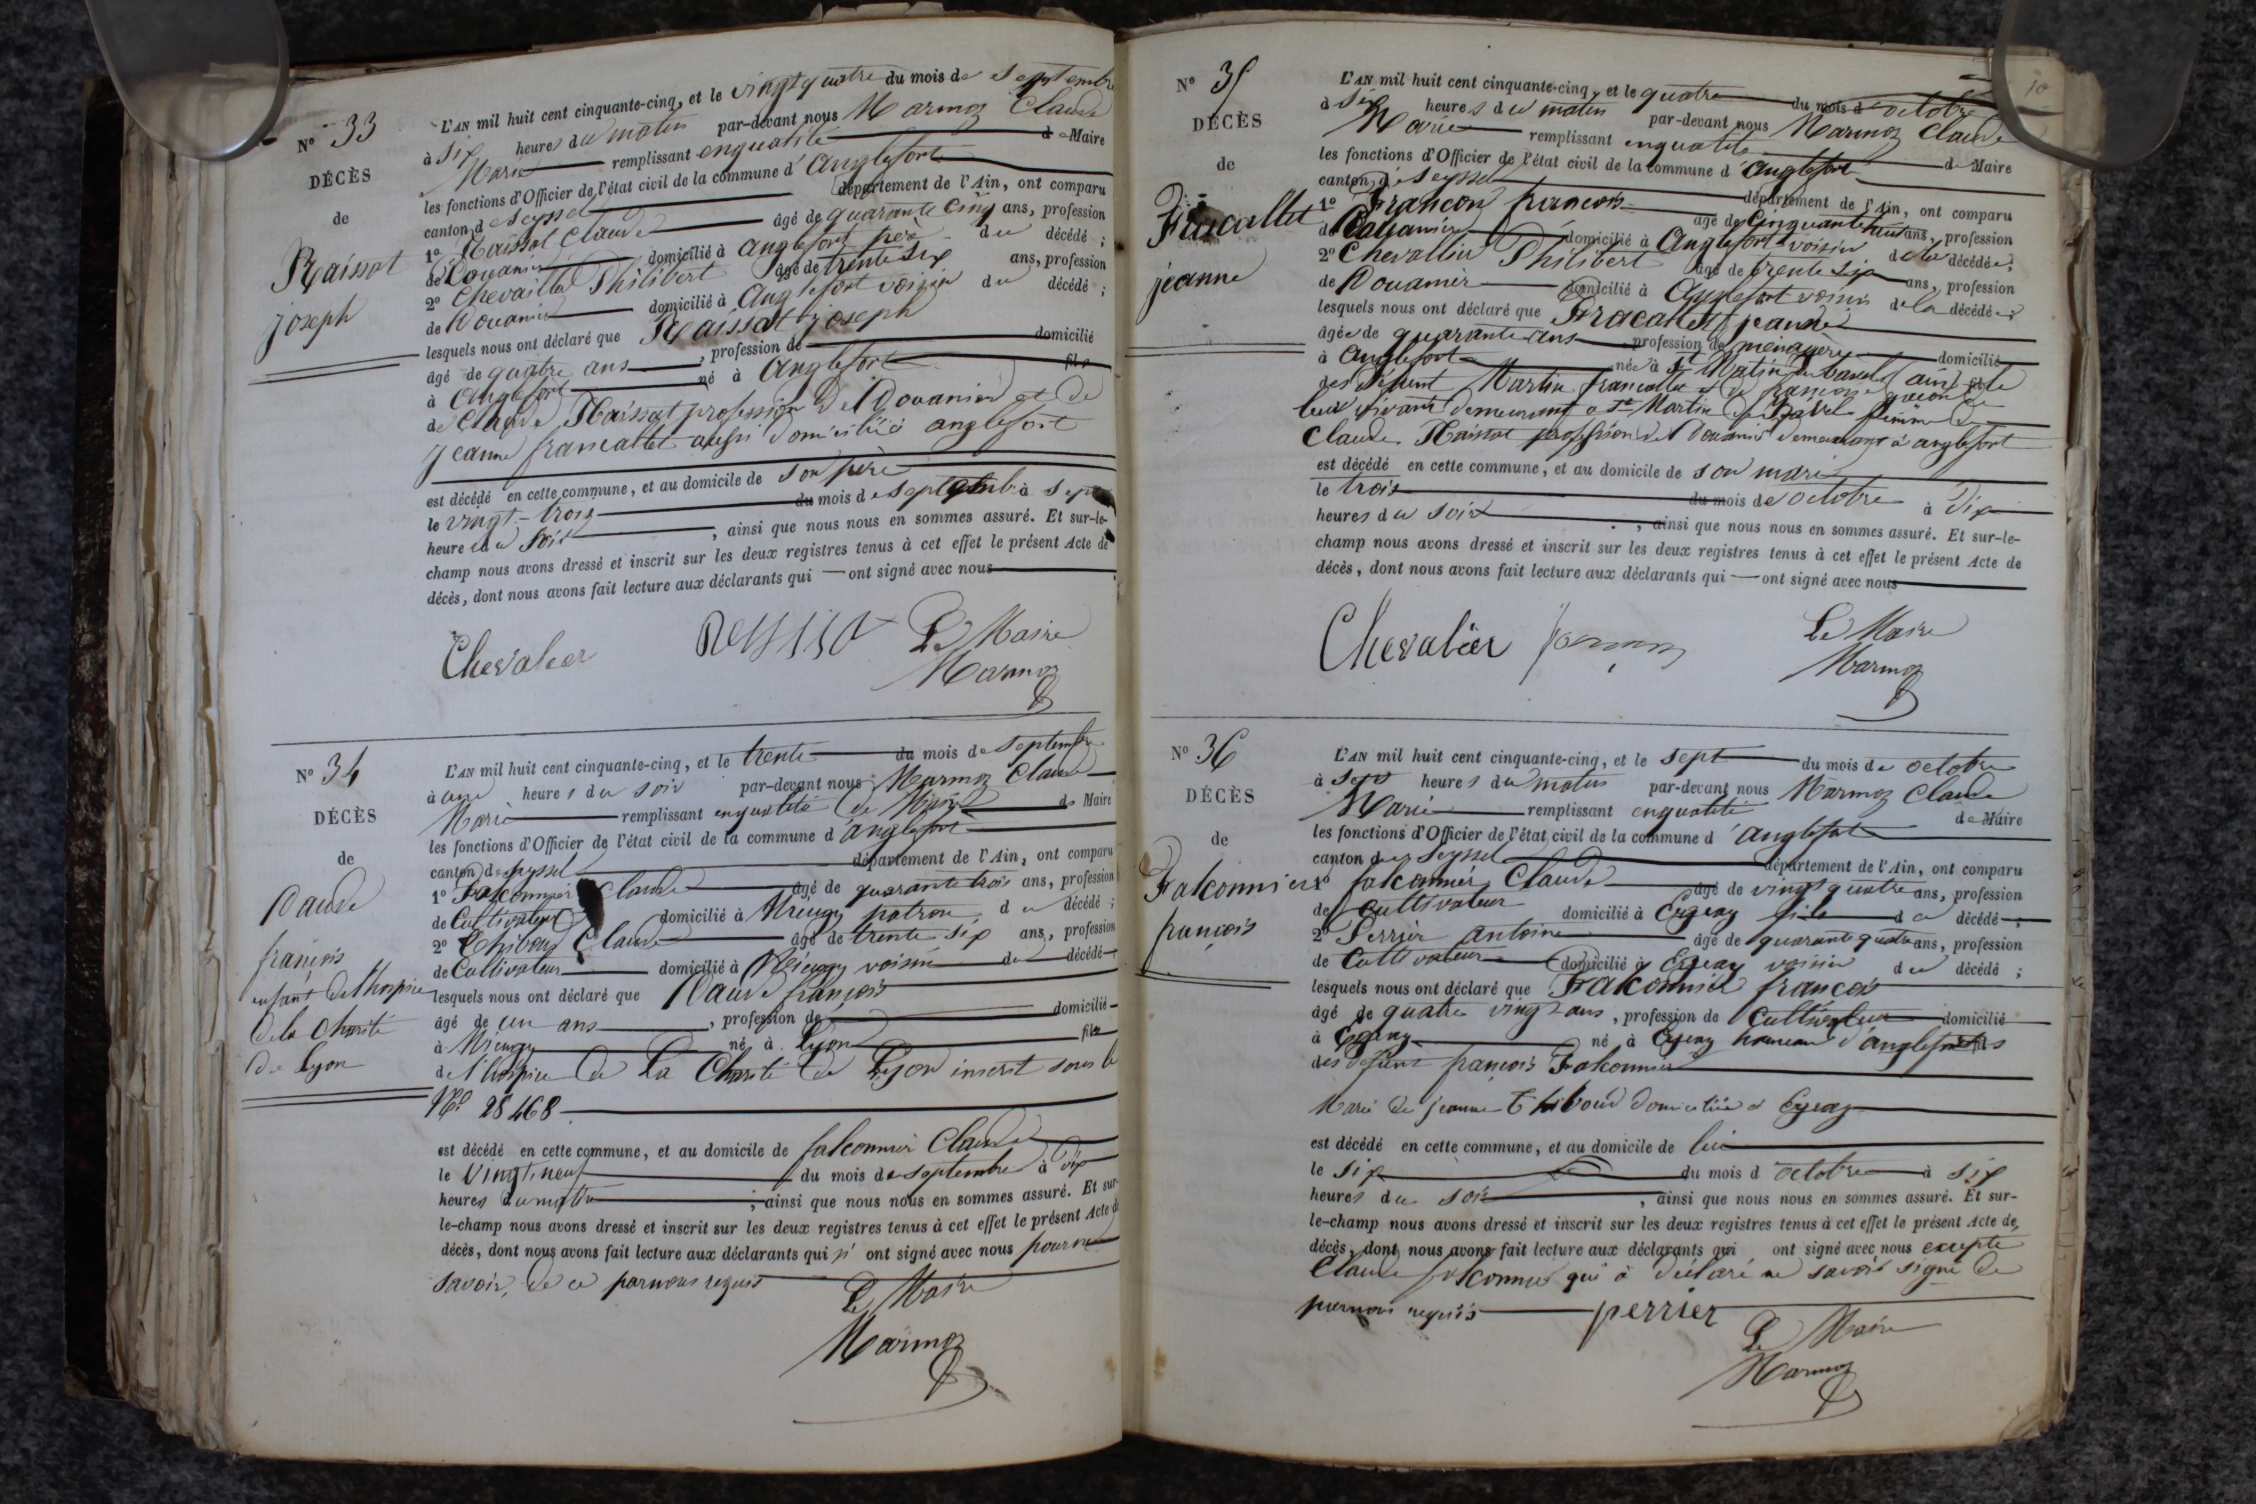 N° 33
DÉCÈS
de
Raissat
joseph
L'AN mil huit cent cinquante-cinq, et le vingt quatre du mois de septembre
à six heures du matin par-devant nous Marmoz Claude
Marie remplissant enqualité de Maire
les fonctions d'Officier de l'état civil de la commune d'anglefort
canton de Seyssel département de l'Ain, ont comparu
1° Raissat Claude âgé de quarante cinq ans, profession
de Douanier domicilié à anglefort père du décédé ;
2° Chevallier Philibert âgé de trente six ans, profession
de Douanier domicilié à Anglefort voisin du décédé ;
lesquels nous ont déclaré que Raissat joseph
âgé de quatre ans, profession de domicilié
à Anglefort né à anglefort fils
de Claude Raissat profession de Douanier et de
jeanne francallet aussi domiciliée anglefort
est décédé en cette commune, et au domicile de son père
le vingt-trois du mois de septembre à sept
heure du soir, ainsi que nous nous en sommes assuré. Et sur-le-
champ nous avons dressé et inscrit sur les deux registres tenus à cet effet le présent Acte de
décès, dont nous avons fait lecture aux déclarants qui — ont signé avec nous
Chevalier Le Maire
Marmoz
N° 34
DÉCÈS
de
Daude
françois
enfant de l'hospice
de la charité
de Lyon
L'AN mil huit cent cinquante-cinq, et le trente du mois de septembre
à une heures du soir par-devant nous Marmoz Claude
Marie remplissant enqualité de Maire de Maire
les fonctions d'Officier de l'état civil de la commune d'anglefort
canton de Seyssel département de l'Ain, ont comparu
1° Falconnier Claude âgé de quarante trois ans, profession
de Cultivateur domicilié à patron du décédé ;
2° Thiboud Claude âgé de trente six ans, profession
de Cultivateur domicilié à voisin du décédé
lesquels nous ont déclaré que Daude françois
âgé de un ans, profession de domicilié
à né à Lyon fils
de l'hospice de La Charité de Lyon inscrit sous le
N° 28468
est décédé en cette commune, et au domicile de falconnier Claude
le Vingt neuf du mois de septembre à dix
heures du matin, ainsi que nous nous en sommes assuré. Et sur-
le-champ nous avons dressé et inscrit sur les deux registres tenus à cet effet le présent Acte de
décès, dont nous avons fait lecture aux déclarants qui n' ont signé avec nous pour ne
savoir, de ce par nous requis
Le Maire
Marmoz
10
N° 35
DÉCÈS
de
Francallet
jeanne
L'AN mil huit cent cinquante-cinq, et le quatre du mois d'octobre
à six heures du matin par-devant nous Marmoz Claude
Marie remplissant enqualité de Maire
les fonctions d'Officier de l'état civil de la commune d'anglefort
canton de Seyssel département de l'Ain, ont comparu
1° Francon françois âgé de Cinquante huit ans, profession
de Douanier domicilié à Anglefort voisin de la décédée ;
2° Chevallier Philibert âgé de trente six ans, profession
de Douanier domicilié à Anglefort voisin de la décédée ;
lesquels nous ont déclaré que Fracallet jeanne
âgée de quarante ans profession de ménagère domicilié
à Anglefort née à St Martin de Bavel (ain) fille
des défunt Martin francallet et de françoise
leur vivant demeurant a St Martin de Bavel femme de
Claude Raissat profession de Douanier demeurant à anglefort
est décédé en cette commune, et au domicile de son mari
le trois du mois de octobre à dix
heures du soir, ainsi que nous nous en sommes assuré. Et sur-le-
champ nous avons dressé et inscrit sur les deux registres tenus à cet effet le présent Acte de
décès, dont nous avons fait lecture aux déclarants qui — ont signé avec nous
Chevalier Le Maire
Marmoz
N° 36
DÉCÈS
de
Falconnier
françois
L'AN mil huit cent cinquante-cinq, et le sept du mois de octobre
à sept heures du matin par-devant nous Marmoz Claude
Marie remplissant enqualité de Maire
les fonctions d'Officier de l'état civil de la commune d'anglefort
canton de Seyssel département de l'Ain, ont comparu
1° falconnier Claude âgé de vingt quatre ans, profession
de cultivateur domicilié à Eyray fils du décédé ;
2° Perrier antoine âgé de quarante quatre ans, profession
de Cultivateur domicilié à Eyray voisin du décédé ;
lesquels nous ont déclaré que Falconnier françois
âgé de quatre vingt ans, profession de Cultivateur domicilié
à Eyray né à Eyray hameau d'anglefort fils
des défunt françois Falconnier
Marié de jeanne Thiboud domiciliée a Eyray
est décédé en cette commune, et au domicile de lui
le six du mois d'octobre à six
heures du soir, ainsi que nous nous en sommes assuré. Et sur-
le-champ nous avons dressé et inscrit sur les deux registres tenus à cet effet le présent Acte de
décès, dont nous avons fait lecture aux déclarants qui ont signé avec nous excepte
Claude falconnier qui a déclaré ne savoir signé de
par nous requis perrier
Le Maire
Marmoz